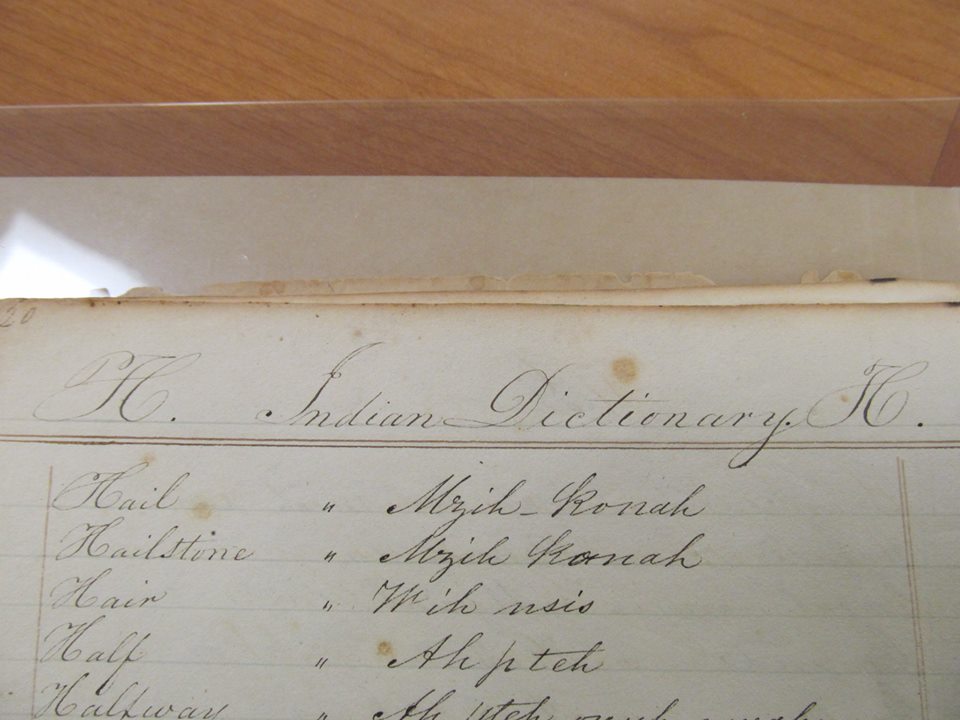 20
H. Indian Dictionary. H.
Hail " Mzih-konah
Hailstone " Mzih konah
Hair " Wih nsis
Half " Ah pteh
Halfway " Ah pteh